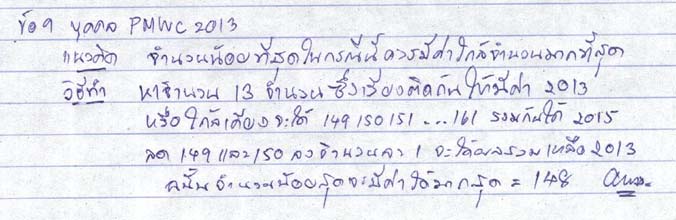 ข้อ 9 บุคคล PMWC 2013
แนวคิด จำนวนน้อยที่สุดในกรณีนี้ ควรมีค่าใกล้จำนวนมากที่สุด
วิธีทำ หาจำนวน 13 จำนวน ซึ่งเรียงติดกันให้มีค่า 2013
หรือใกล้เคียงจะได้ 149 150 151 ... 161 รวมกันได้ 2015
ลด 149 และ 150 ลงจำนวนละ 1 จะได้ผลรวมเหลือ 2013
ฉะนั้นจำนวนน้อยสุดจะมีค่าได้มากสุด = 148 ตอบ